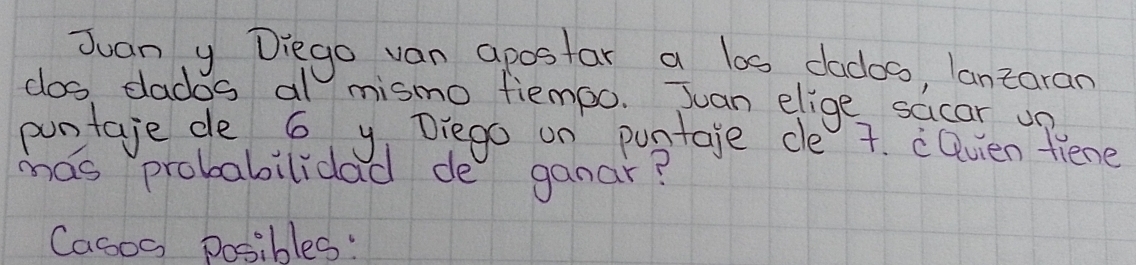 Juan y Diego van apostar a los dados, lanzaran
dos dados al mismo tiempo. Juan elige sácar un
puntaje de 6 y Diego un puntaje de 7. ¿Quien tiene
más probabilidad de ganar?
Casos posibles: